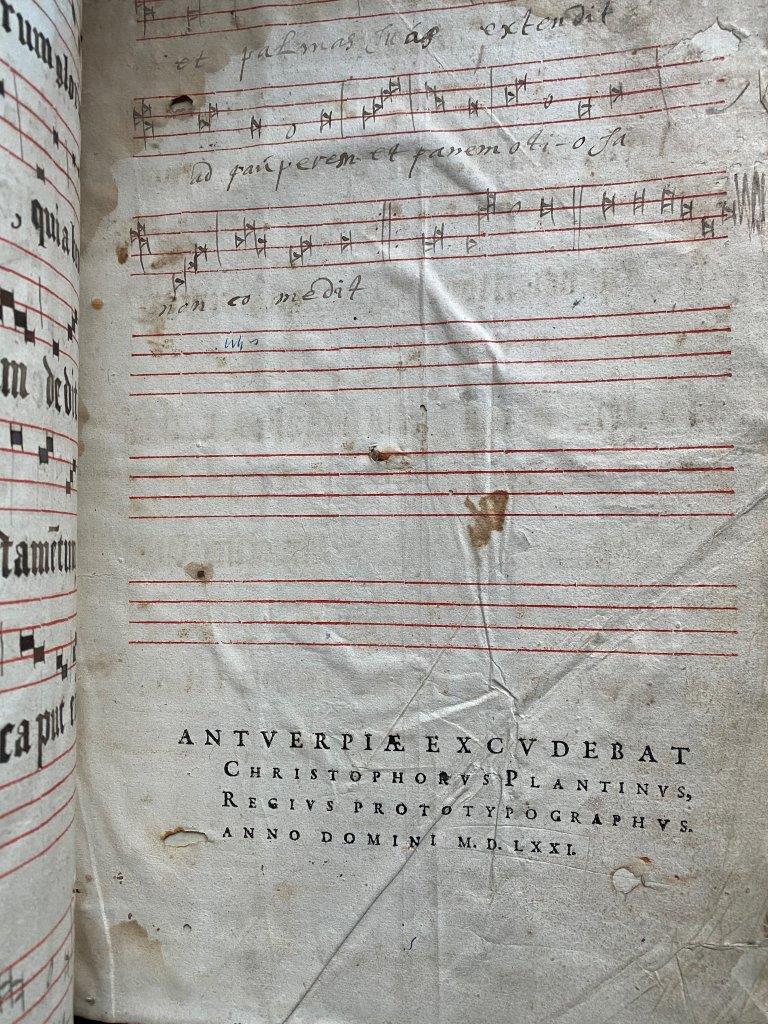 rum
, quia
m dedit
stamētum
caput
et palmas suas extendit
ad pauperem et panem oti-o sa
non co medit
ANTVERPIÆ EXCVDEBAT
CHRISTOPHORVS PLANTINVS,
REGIVS PROTOTYPOGRAPHVS.
ANNO DOMINI M. D. LXXI.